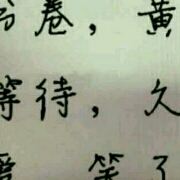 卷，黄
等待，久
笑了